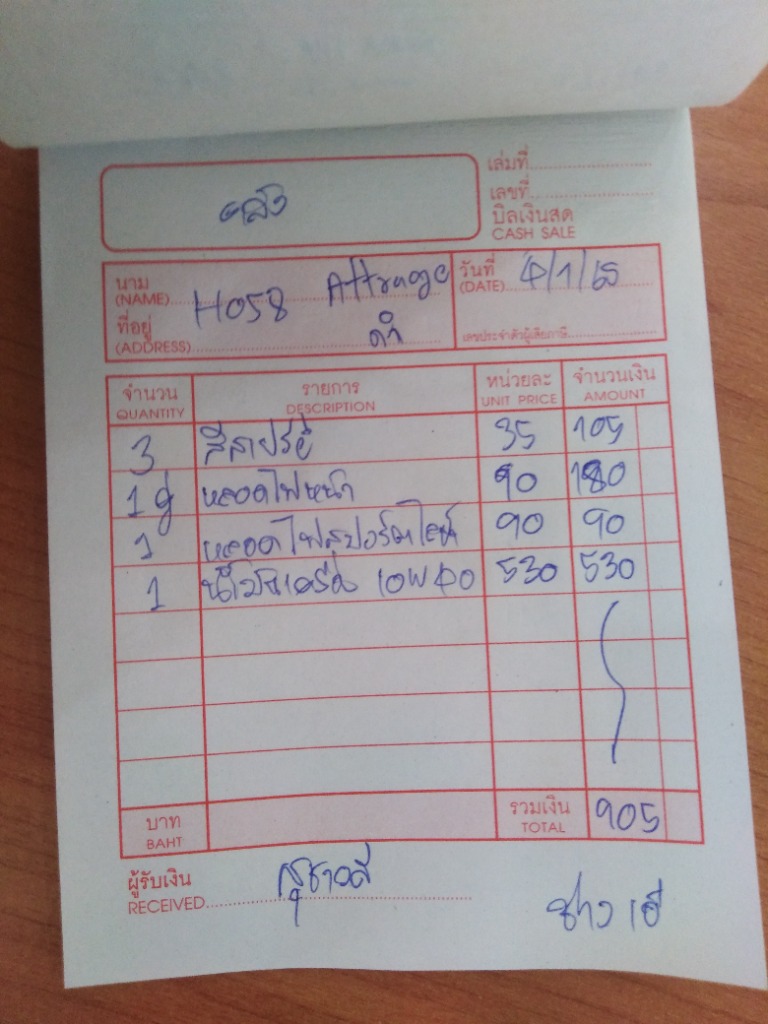 เล่มที่
เลขที่
บิลเงินสด
CASH SALE
นาม
(NAME) H058 Attrage
ที่อยู่
(ADDRESS) ดำ
วันที่
(DATE) 4/1/65
เลขประจำตัวผู้เสียภาษี
จำนวน QUANTITY รายการ DESCRIPTION หน่วยละ UNIT PRICE จำนวนเงิน AMOUNT
3 สีสเปรย์ 35 105
1 คู่ หลอดไฟหน้า 90 180
1 หลอดไฟสปอร์ตไลท์ 90 90
1 10W40 530 530
บาท
BAHT
รวมเงิน
TOTAL 905
ผู้รับเงิน
RECEIVED สุชาวดี
ช่าง